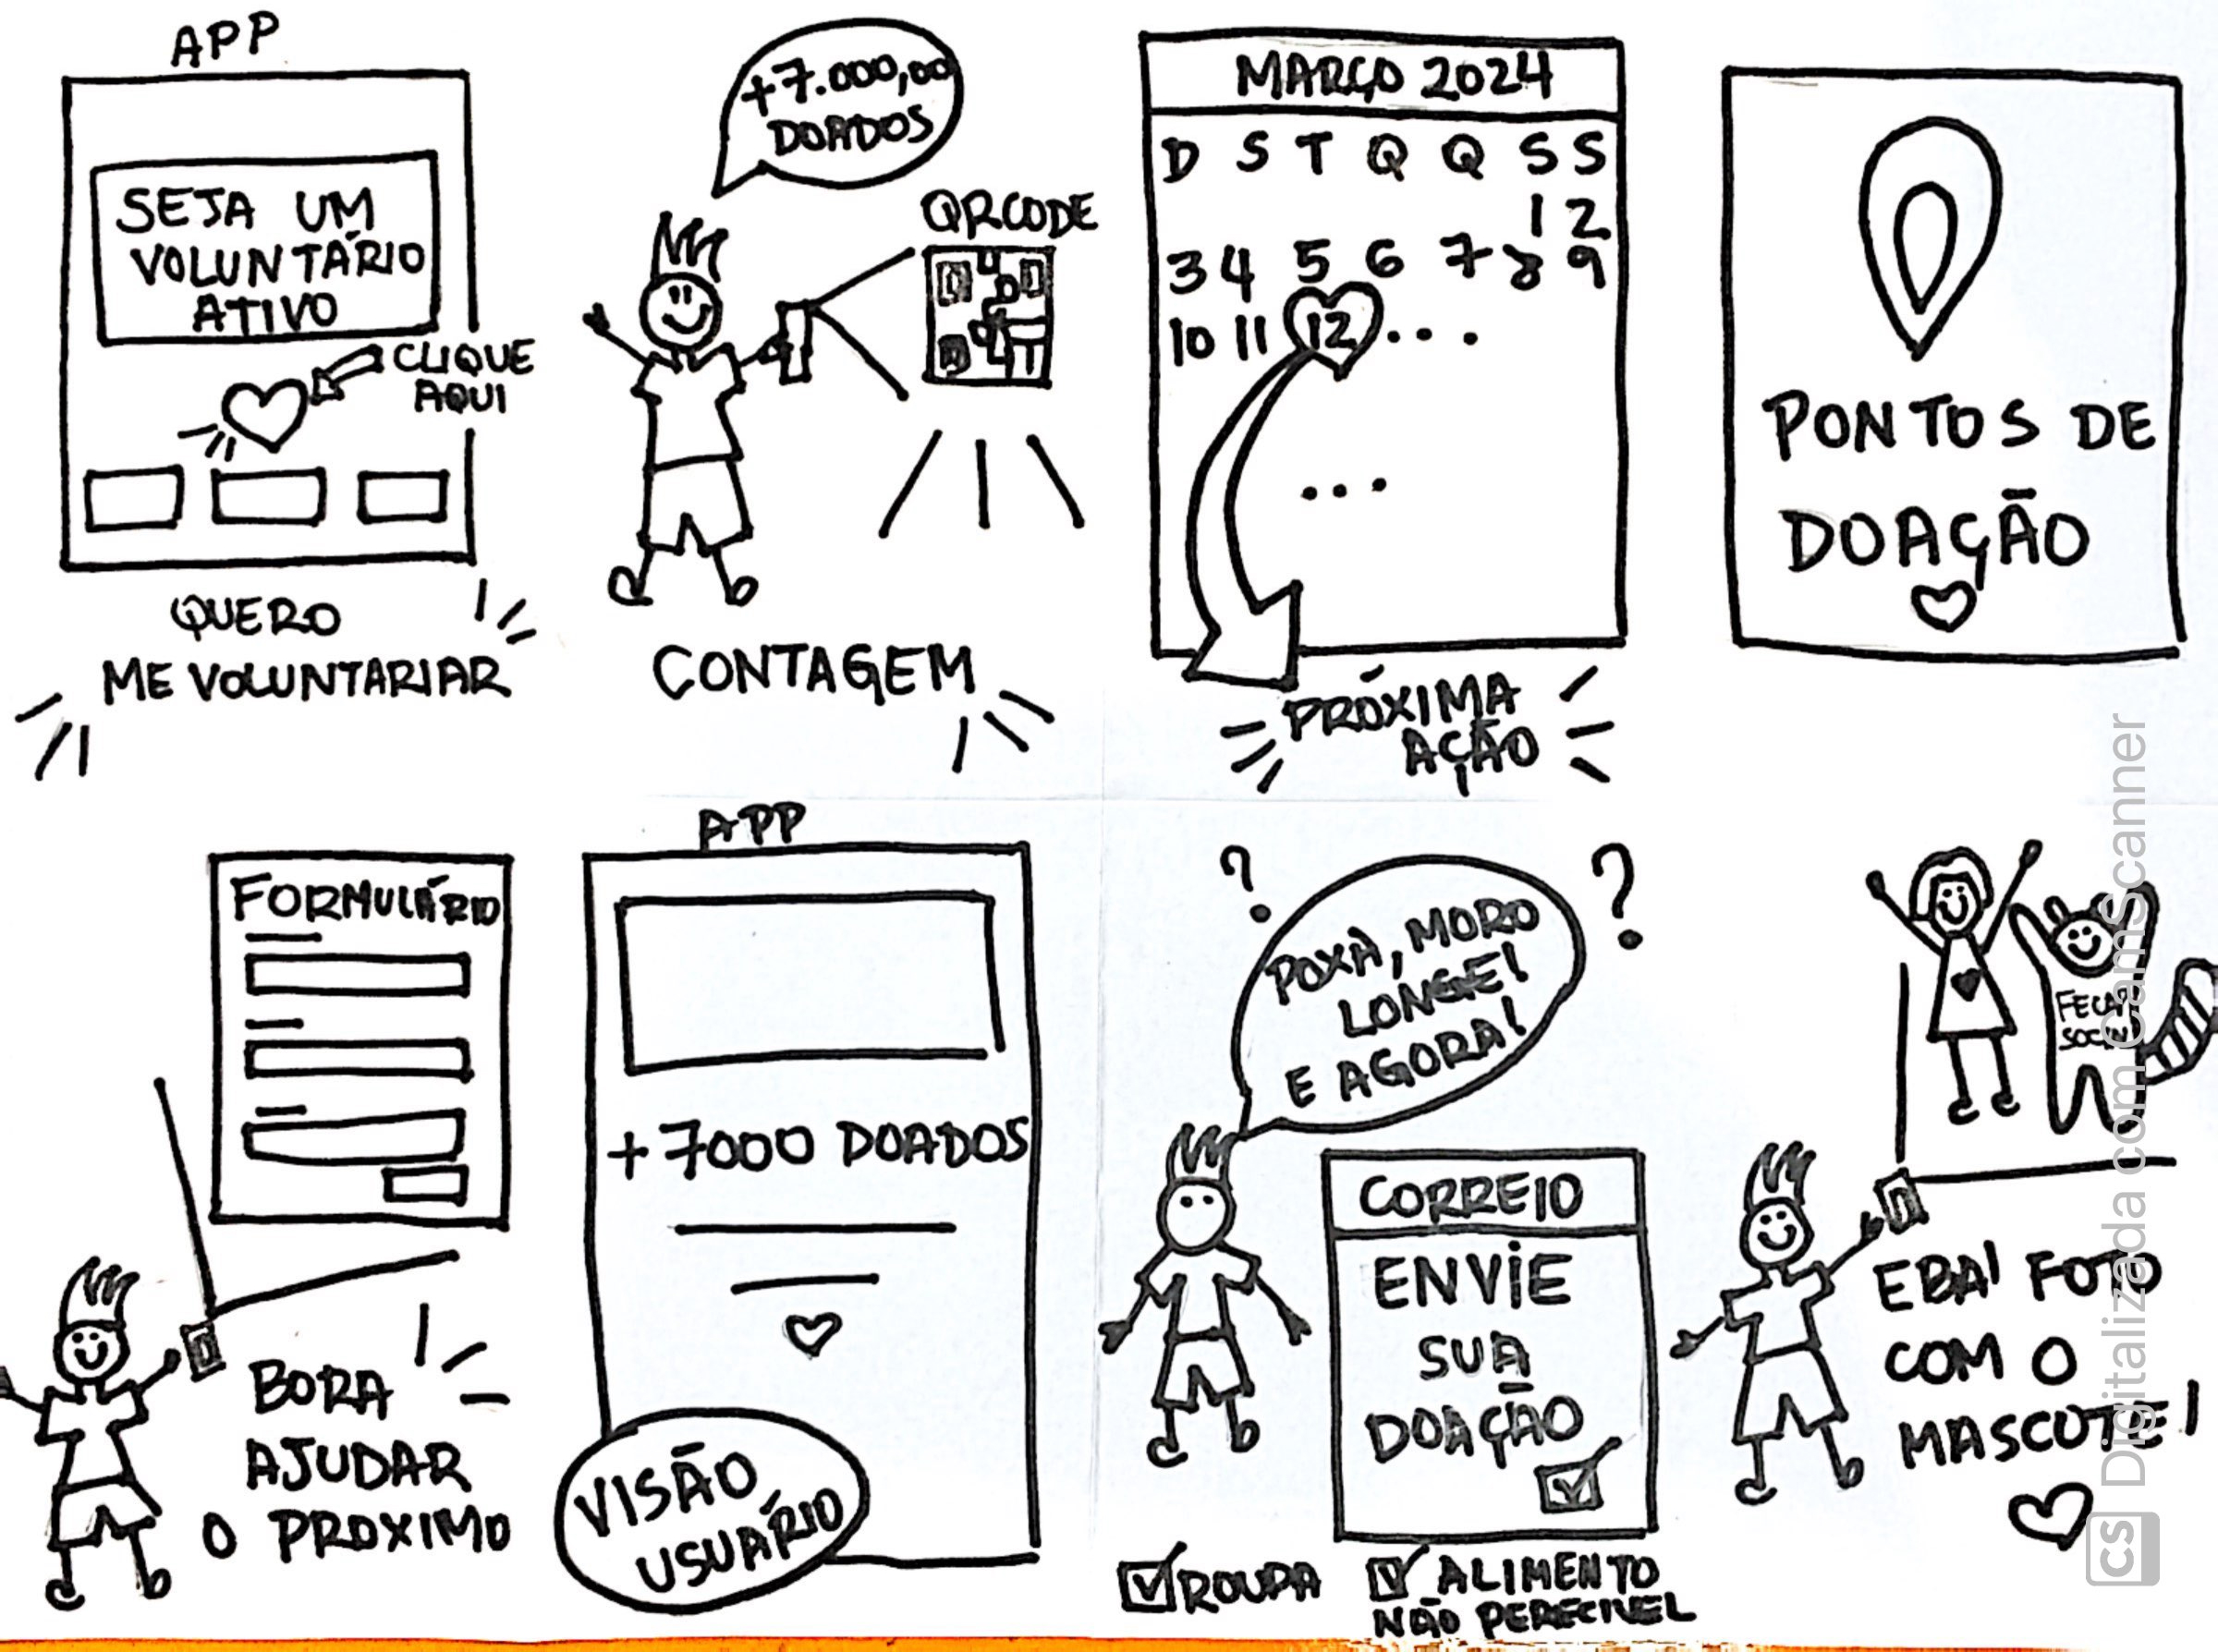 APP
SEJA UM
VOLUNTÁRIO
ATIVO
CLIQUE
AQUI
QUERO
ME VOLUNTARIAR
+7.000,00
DOADOS
QRCODE
CONTAGEM
MARÇO 2024
D S T Q Q S S
1 2
3 4 5 6 7 8 9
10 11 12 ...
...
PRÓXIMA
AÇÃO
PONTOS DE
DOAÇÃO
FORMULÁRIO
BORA
AJUDAR
O PROXIMO
APP
+ 7000 DOADOS
VISÃO
USUÁRIO
? ?
POXA, MORO
LONGE!
E AGORA!
CORREIO
ENVIE
SUA
DOAÇÃO
ROUPA
ALIMENTO
NÃO PERECIVEL
EBA! FOTO
COM O
MASCOTE!
CS Digitalizada com CamScanner